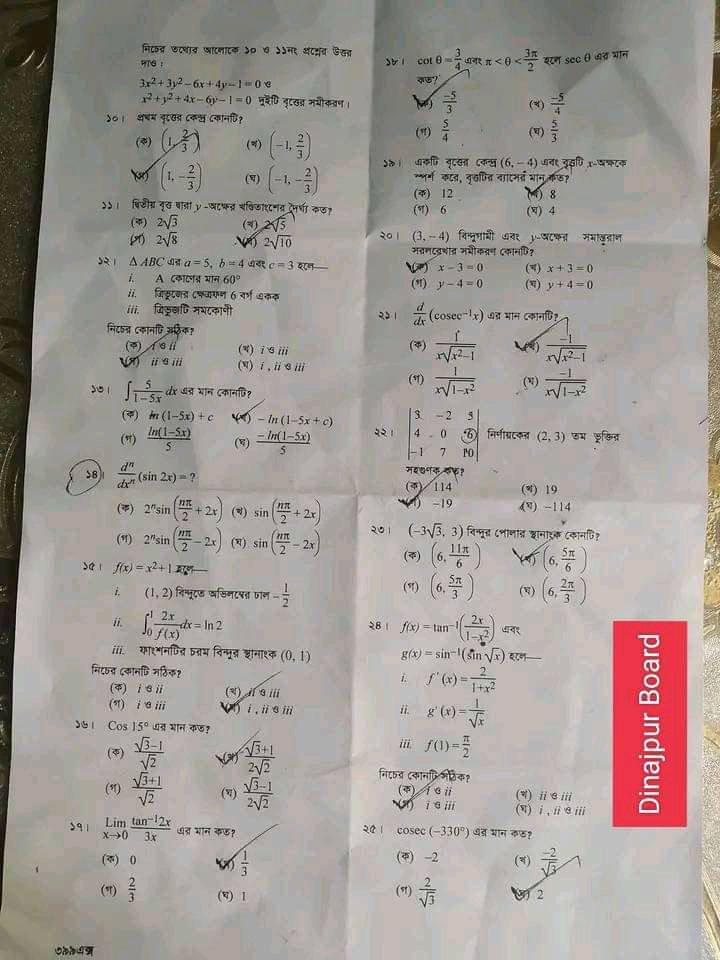 নিচের তথ্যের আলোকে ১০ ও ১১নং প্রশ্নের উত্তর
দাও :
3x² + 3y² – 6x + 4y – 1 = 0 ও
x² + y² + 4x – 6y – 1 = 0 দুইটি বৃত্তের সমীকরণ।
১০। প্রথম বৃত্তের কেন্দ্র কোনটি?
(ক) (1, 2/3) (খ) (–1, 2/3)
(গ) (1, –2/3) (ঘ) (–1, –2/3)
১১। দ্বিতীয় বৃত্ত দ্বারা y -অক্ষের খণ্ডিতাংশের দৈর্ঘ্য কত?
(ক) 2√3 (খ) 2√5
(গ) 2√8 (ঘ) 2√10
১২। Δ ABC এর a = 5, b = 4 এবং c = 3 হলে—
i. A কোণের মান 60°
ii. ত্রিভুজের ক্ষেত্রফল 6 বর্গ একক
iii. ত্রিভুজটি সমকোণী
নিচের কোনটি সঠিক?
(ক) i ও ii (খ) i ও iii
(গ) ii ও iii (ঘ) i , ii ও iii
১৩। ∫ 5/(1–5x) dx এর মান কোনটি?
(ক) ln (1–5x) + c (খ) – ln (1–5x + c)
(গ) ln(1–5x)/5 (ঘ) – ln(1–5x)/5
১৪। dⁿ/dxⁿ (sin 2x) = ?
(ক) 2ⁿsin (nπ/2 + 2x) (খ) sin (nπ/2 + 2x)
(গ) 2ⁿsin (nπ/2 – 2x) (ঘ) sin (nπ/2 – 2x)
১৫। f(x) = x² + 1 হলে—
i. (1, 2) বিন্দুতে অভিলম্বের ঢাল – 1/2
ii. ∫₀¹ 2x/f(x) dx = ln 2
iii. ফাংশনটির চরম বিন্দুর স্থানাংক (0, 1)
নিচের কোনটি সঠিক?
(ক) i ও ii (খ) ii ও iii
(গ) i ও iii (ঘ) i , ii ও iii
১৬। Cos 15° এর মান কত?
(ক) (√3–1)/√2 (খ) (√3+1)/2√2
(গ) (√3+1)/√2 (ঘ) (√3–1)/2√2
১৭। Lim x→0 tan⁻¹2x/3x এর মান কত?
(ক) 0 (খ) 1/3
(গ) 2/3 (ঘ) 1
৩৯৯এক্স
১৮। cot θ = 3/4 এবং π < θ < 3π/2 হলে sec θ এর মান
কত?
(ক) –5/3 (খ) –5/4
(গ) 5/4 (ঘ) 5/3
১৯। একটি বৃত্তের কেন্দ্র (6, – 4) এবং বৃত্তটি x-অক্ষকে
স্পর্শ করে, বৃত্তটির ব্যাসের মান কত?
(ক) 12 (খ) 8
(গ) 6 (ঘ) 4
২০। (3, – 4) বিন্দুগামী এবং y-অক্ষের সমান্তরাল
সরলরেখার সমীকরণ কোনটি?
(ক) x – 3 = 0 (খ) x + 3 = 0
(গ) y – 4 = 0 (ঘ) y + 4 = 0
২১। d/dx (cosec⁻¹x) এর মান কোনটি?
(ক) 1/x√(x²–1) (খ) –1/x√(x²–1)
(গ) 1/x√(1–x²) (ঘ) –1/x√(1–x²)
3 –2 3
২২। 4 0 6 নির্ণায়কের (2, 3) তম ভুক্তির
–1 7 10
সহগুণক কত?
(ক) 114 (খ) 19
(গ) –19 (ঘ) –114
২৩। (–3√3, 3) বিন্দুর পোলার স্থানাংক কোনটি?
(ক) (6, 11π/6) (খ) (6, 5π/6)
(গ) (6, 5π/3) (ঘ) (6, 2π/3)
২৪। f(x) = tan⁻¹(2x/(1–x²)) এবং
g(x) = sin⁻¹(sin √x) হলে—
i. f′ (x) = 2/(1+x²)
ii. g′ (x) = 1/√x
iii. f(1) = π/2
নিচের কোনটি সঠিক?
(ক) i ও ii (খ) ii ও iii
(গ) i ও iii (ঘ) i , ii ও iii
২৫। cosec (–330°) এর মান কত?
(ক) –2 (খ) –2/√3
(গ) 2/√3 (ঘ) 2
Dinajpur Board